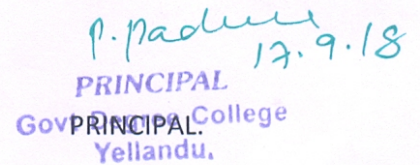 P. Padm
17.9.18
PRINCIPAL
Govt Degree College
PRINCIPAL.
Yellandu.